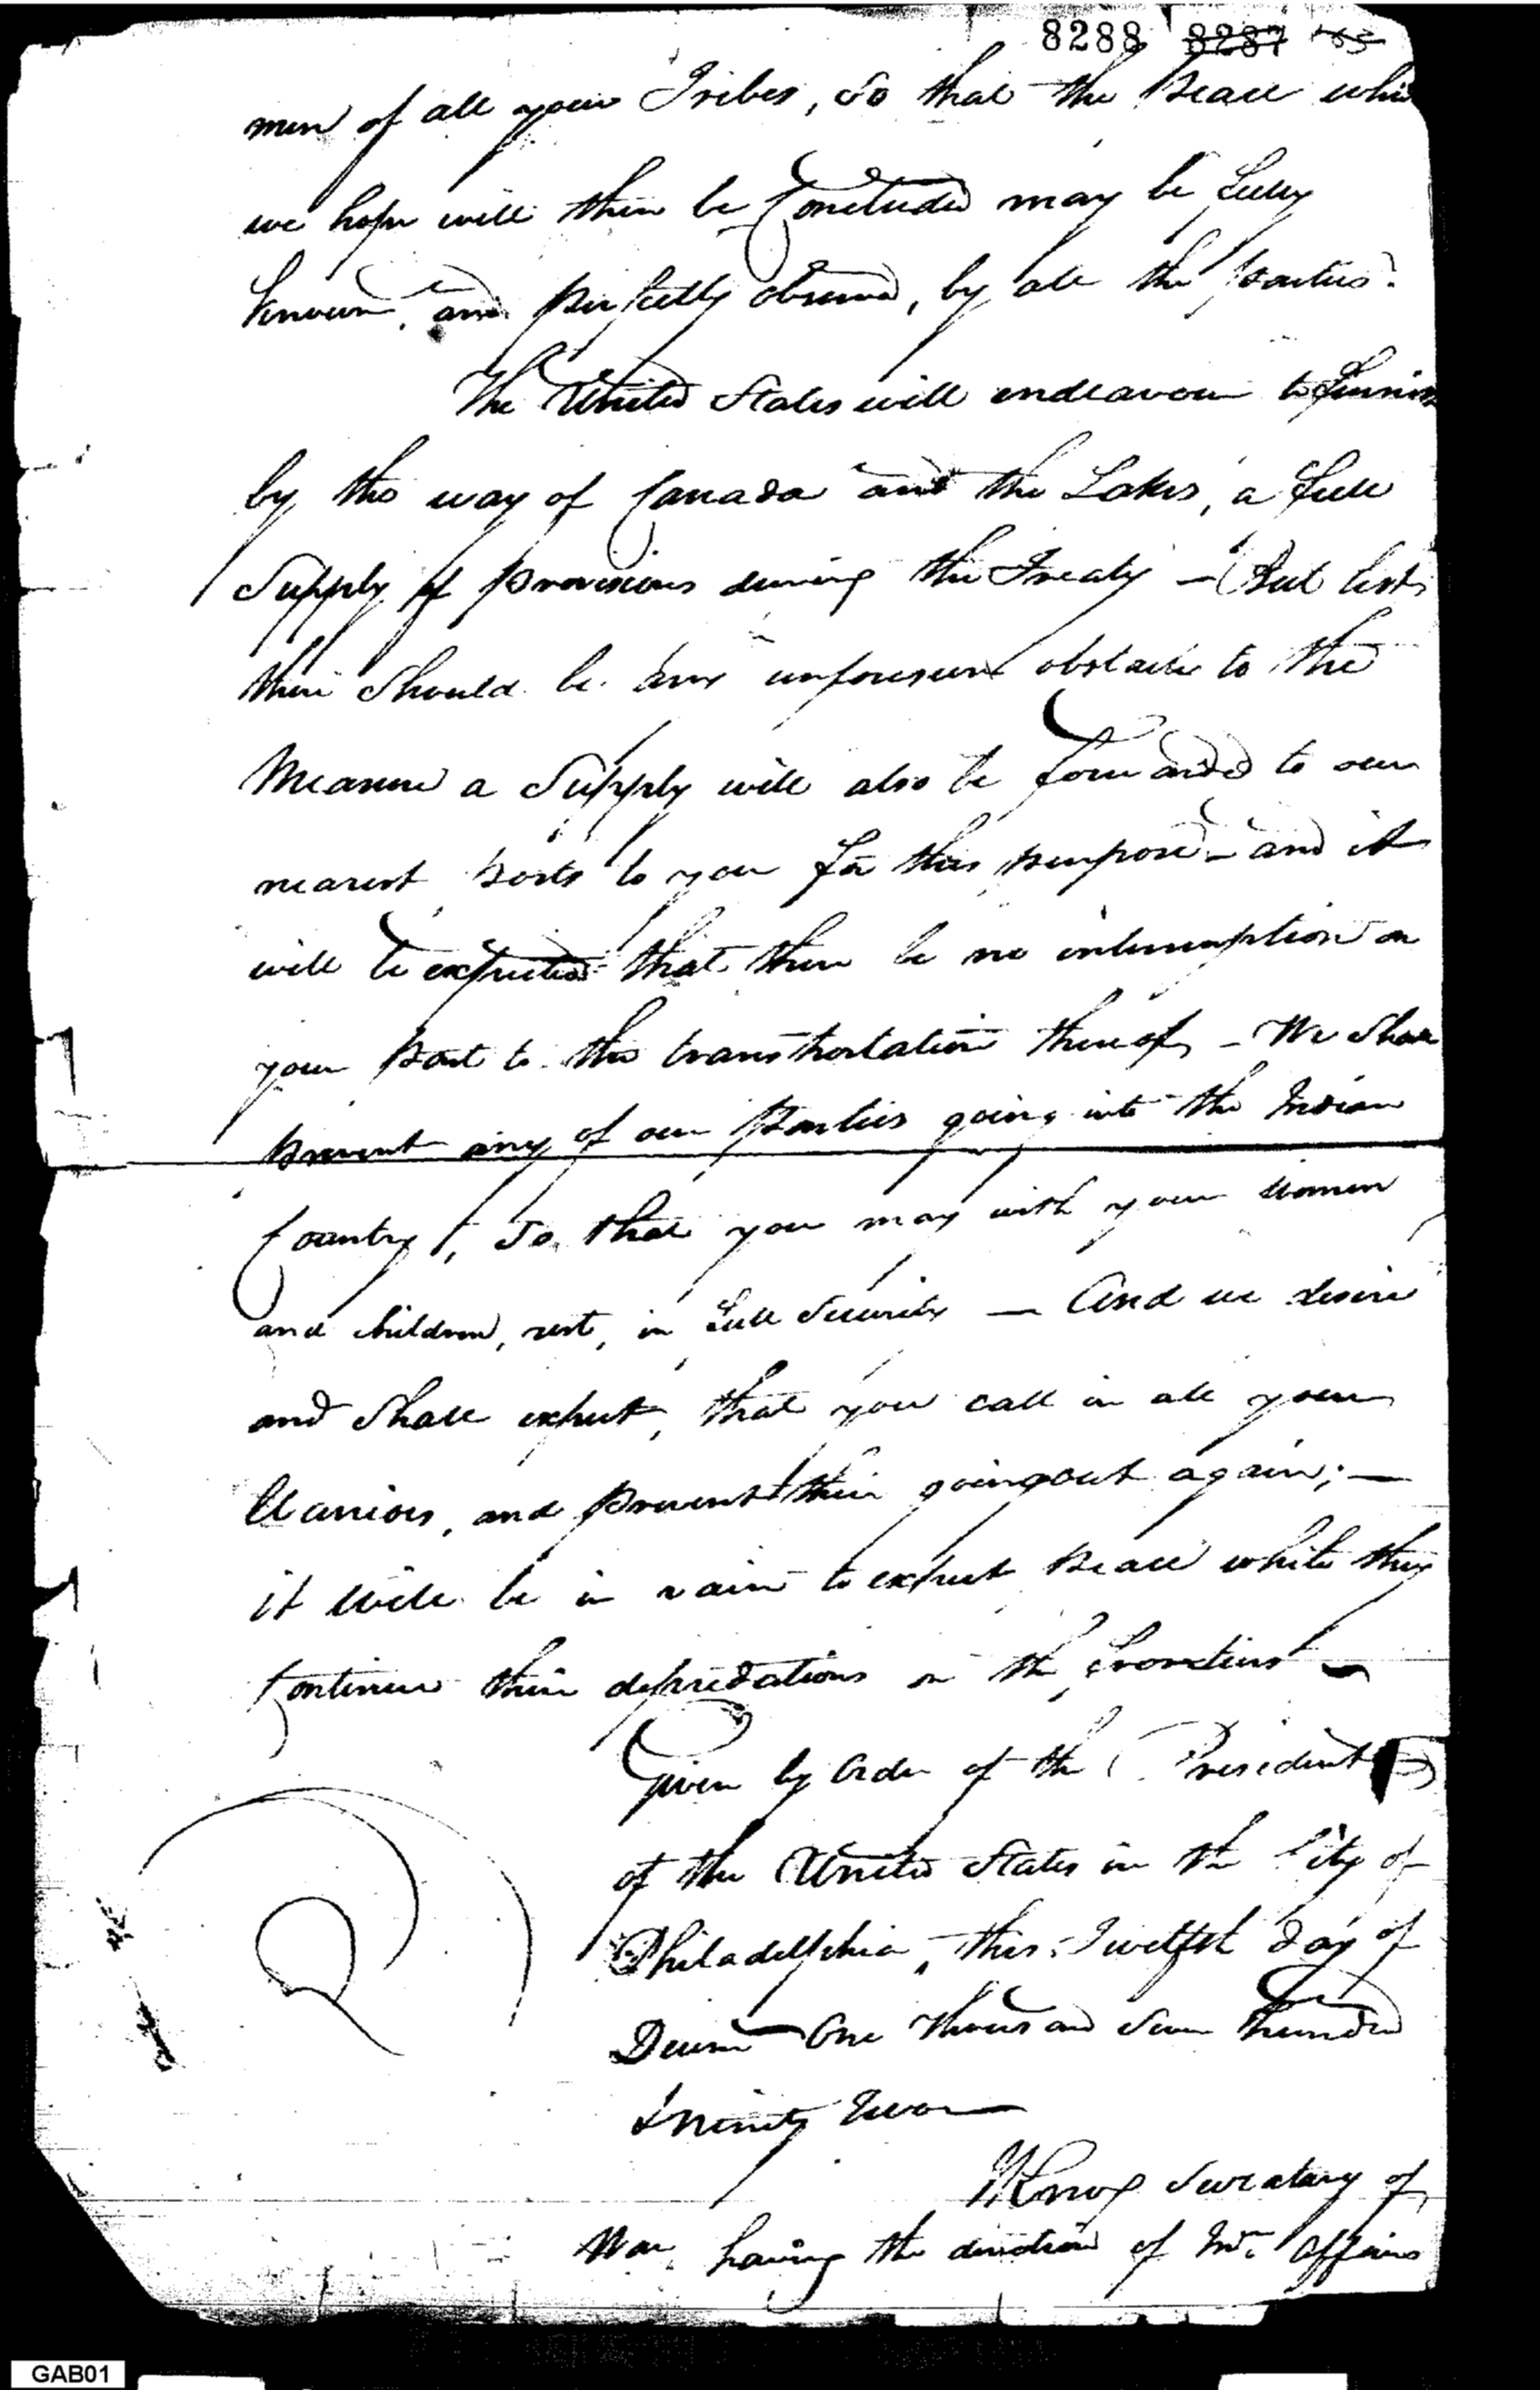 8288 8287
men of all your Tribes, So that the Peace whi
we hope will then be Concluded may be fully
known, and perfectly observed, by all the parties.
The United States will endeavour to furnish
by the way of Canada and the Lakes, a full
Supply of provisions during the Treaty — But lest
their Should be any unforeseen obstacle to the
Measure a Supply will also be forwarded to our
nearest posts to you for this purpose — and it
will be expected that there be no interruption on
your part to the transportation thereof, — We Shall
prevent any of our Parties going into the Indian
Country, So that you may with your Women
and Children, rest, in full Security — And we desire
and Shall expect, that you call in all your
Warriors, and prevent their going out again; —
it will be in vain to expect peace while they
Continue their depredations on the frontiers —
Given by Order of the President
of the United States in the City of
Philadelphia, this Twelfth day of
Decem One thousand Seven hundred
& ninety Two —
HKnox Secretary of
War, having the direction of Ind. Affairs
GAB01